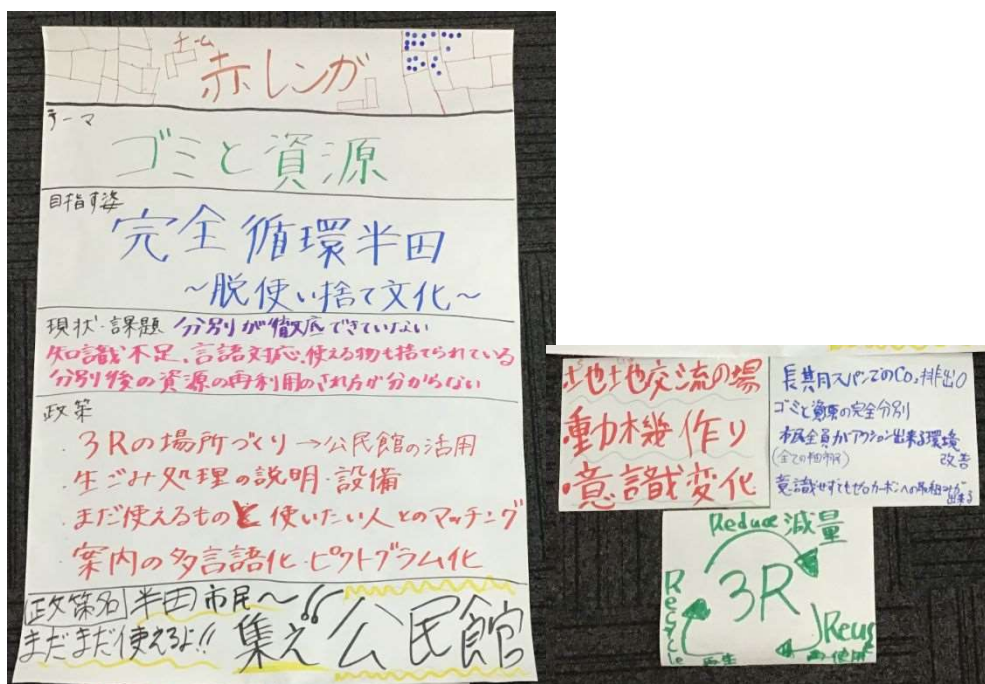 チーム
赤レンガ
テーマ
ゴミと資源
目指す姿
完全循環半田
～脱使い捨て文化～
現状・課題 分別が徹底できていない
知識不足、言語対応、使える物も捨てられている
分別後の資源の再利用のされ方が分からない
政策
・3Rの場所づくり→公民館の活用
・生ごみ処理の説明・設備
・まだ使えるものと使いたい人とのマッチング
・案内の多言語化・ピクトグラム化
政策名 半田市民～
まだまだ使えるよ!! 集え公民館
・地域交流の場
・動機作り
・意識変化
長期スパンでのCO₂排出0
ゴミと資源の完全分別
市民全員がアクション出来る環境
改善
意識せずともゼロカーボンへの取組みが
出来る
Reduce 減量
3R
Recycle
再生
Reus
再使用